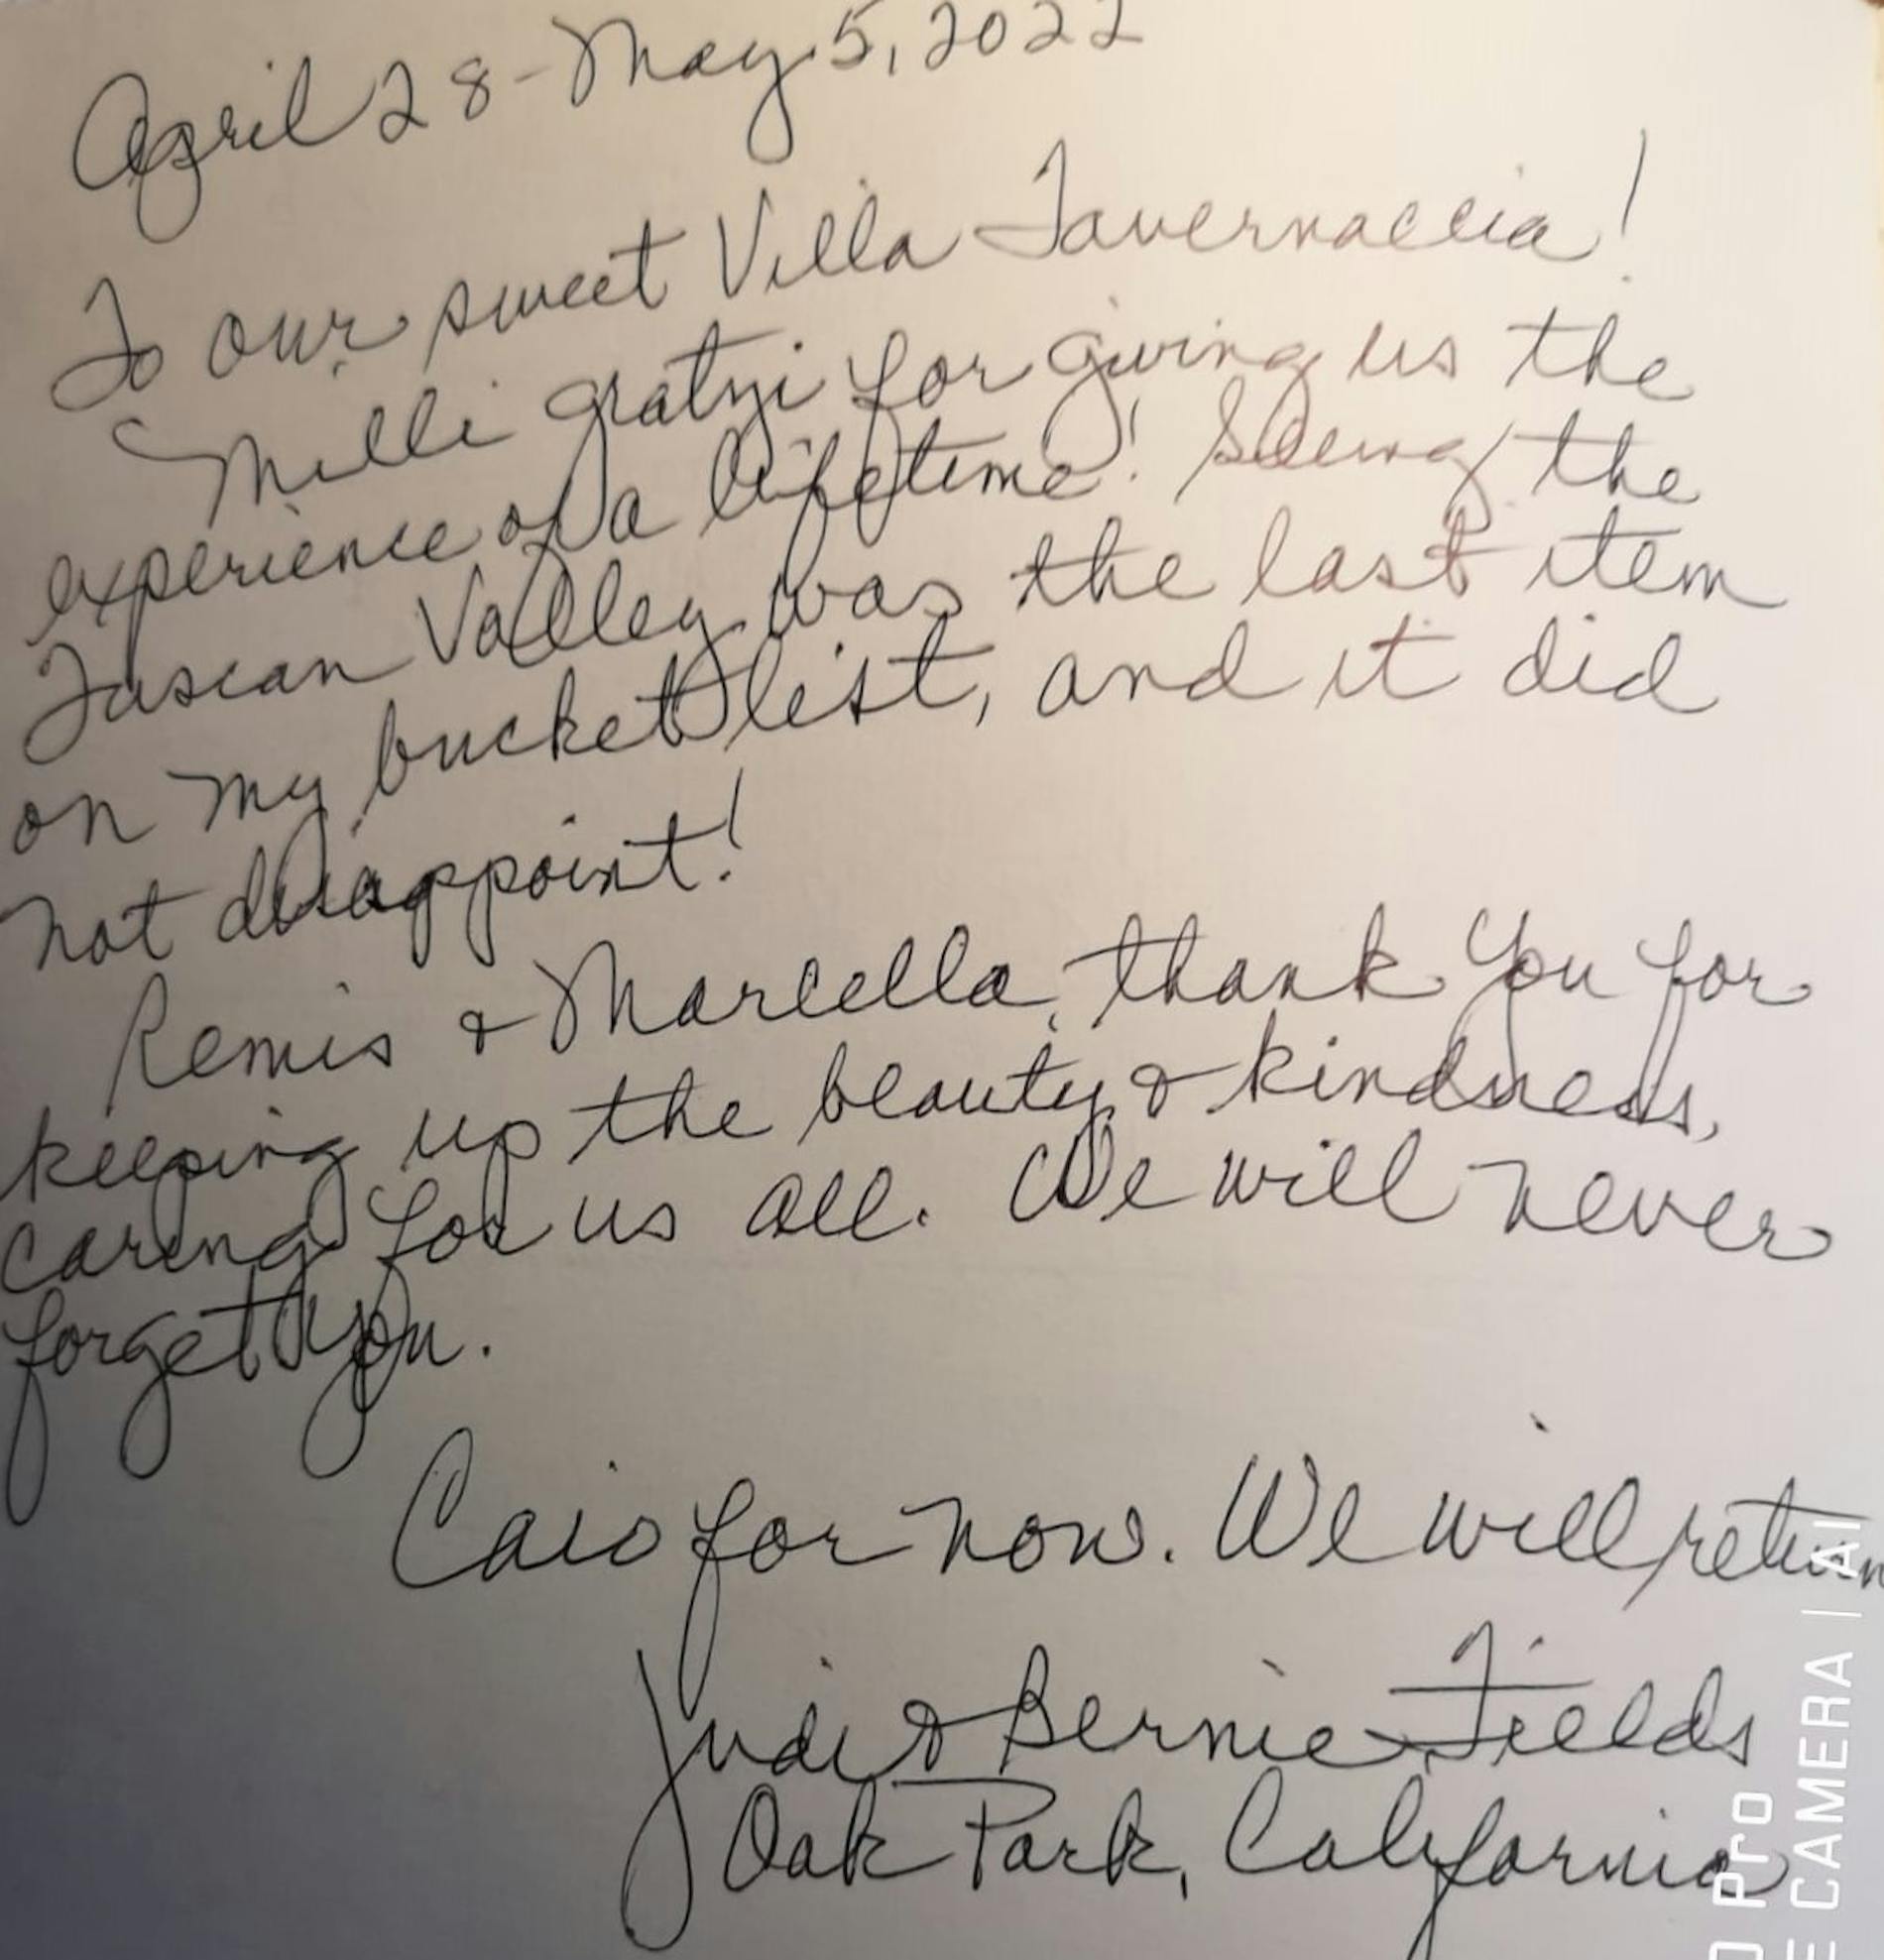 April 28 - May 5, 2022
To our sweet Villa Tavernaccia!
Milli gratzi for giving us the
experience of a lifetime! Seeing the
Tuscan Valley was the last item
on my bucket list, and it did
not disappoint!
Remis & Marcella, thank you for
keeping up the beauty & kindness,
caring for us all. We will never
forget you.
Caio for now. We will return
Judi & Bernie Fields
Oak Park, California
Pro
CAMERA | AI